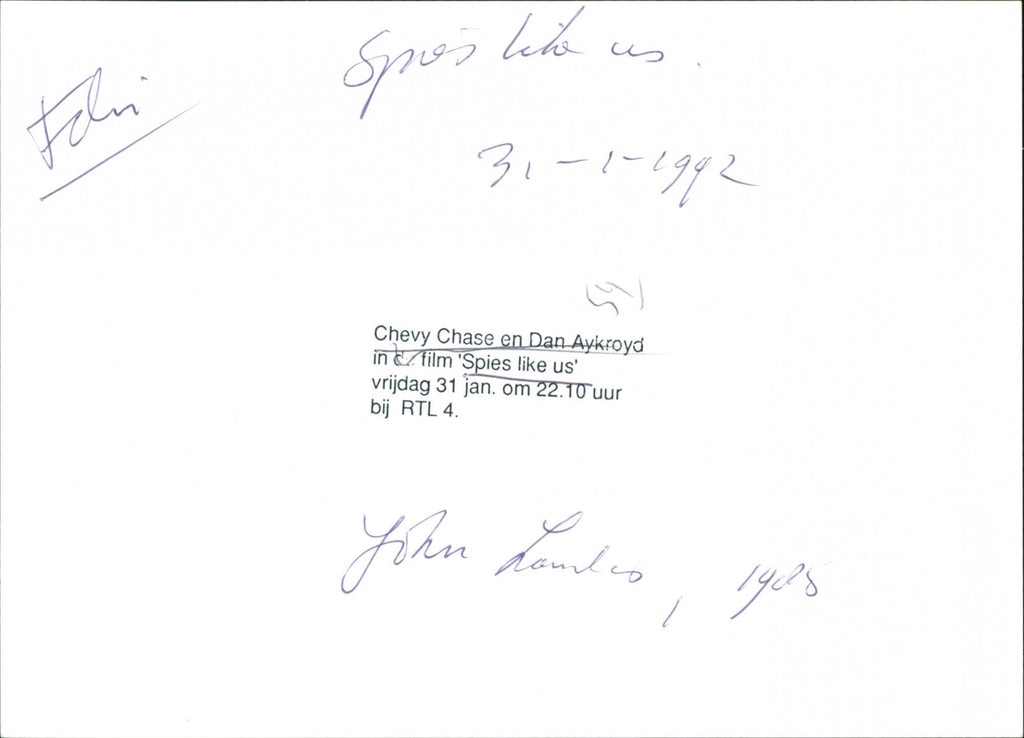 Spies like us.
Edri
31-1-1992
Chevy Chase en Dan Aykroyd
in d film 'Spies like us'
vrijdag 31 jan. om 22.10 uur
bij RTL 4.
John Landis, 1985